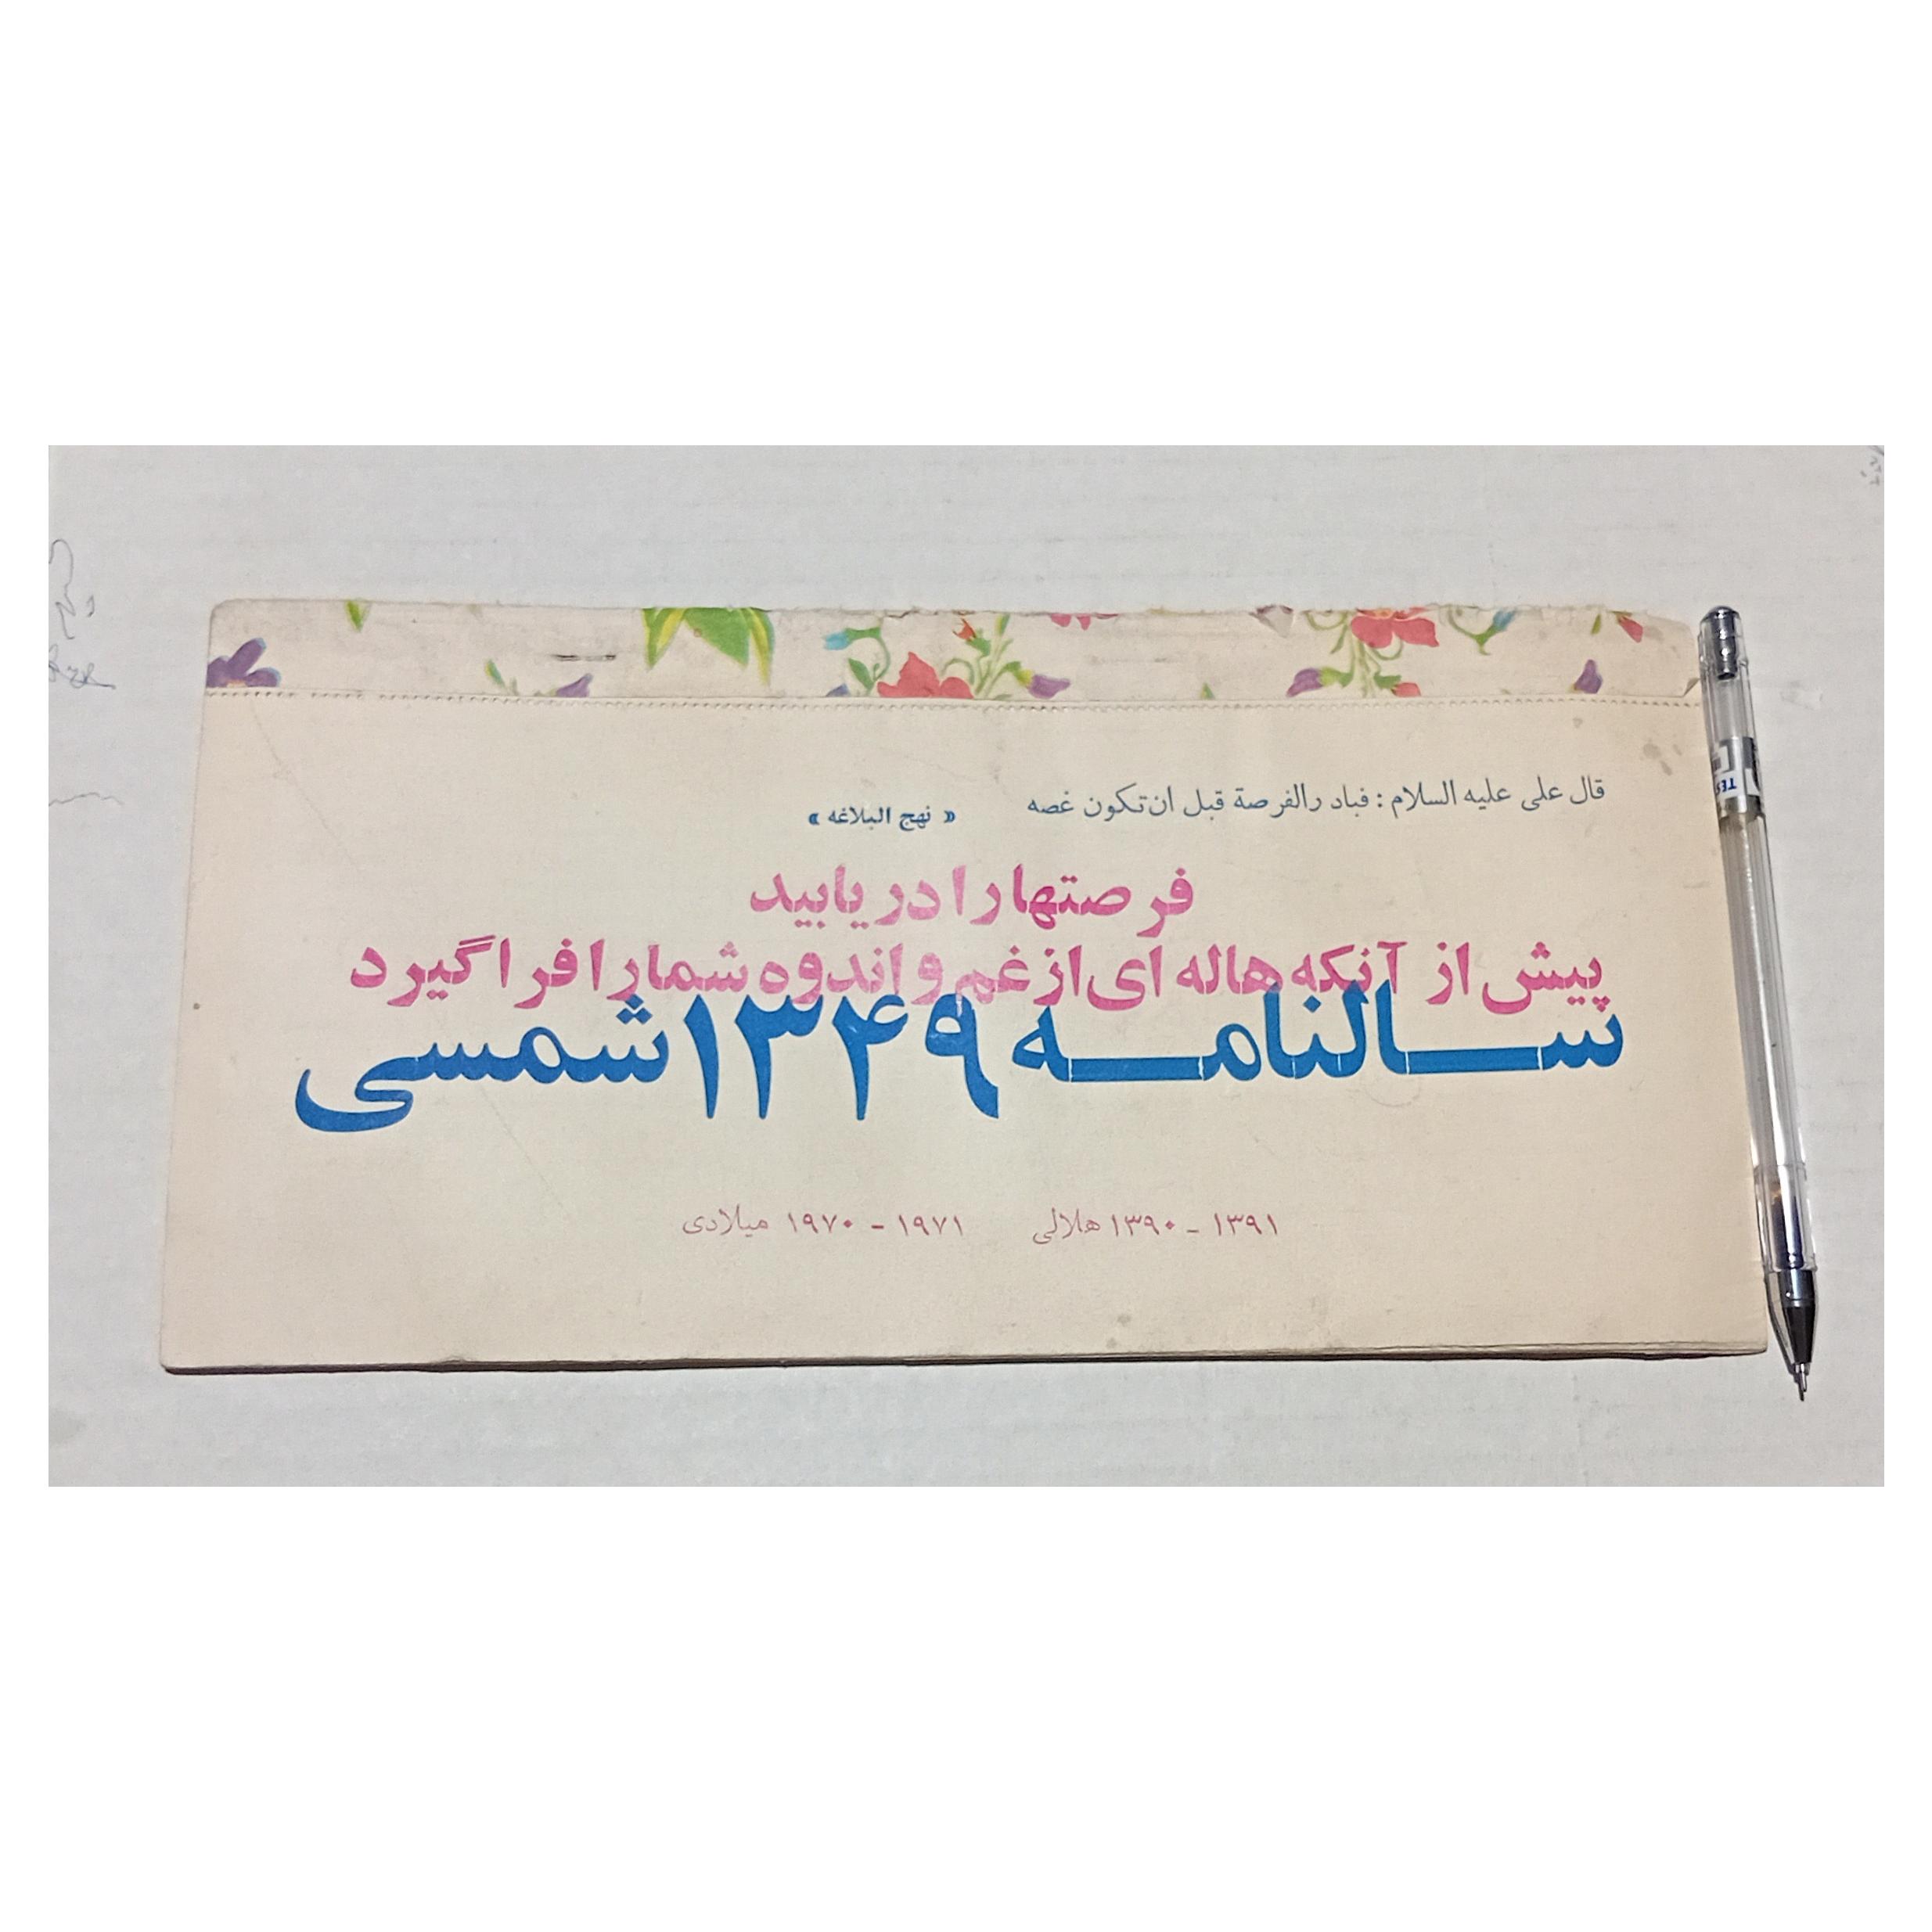 قال علی علیه السلام : فباد رالفرصة قبل ان تکون غصه « نهج البلاغه »
فرصتها را دریابید
پیش از آنکه هاله ای از غم و اندوه شما را فرا گیرد
سالنامه ۱۳۴۹ شمسی
۱۳۹۱ - ۱۳۹۰ هلالی ۱۹۷۱ - ۱۹۷۰ میلادی